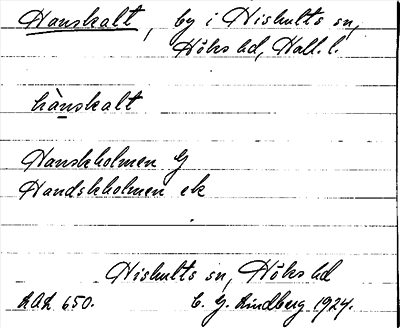 Hanskalt, by i Hishults sn,
Höks hd, Hall. l.
hànskalt
Hanskholmen G
Handskholmen ek
Hishults sn, Höks hd
RAÄ 650. C. G. Lindberg 1924.